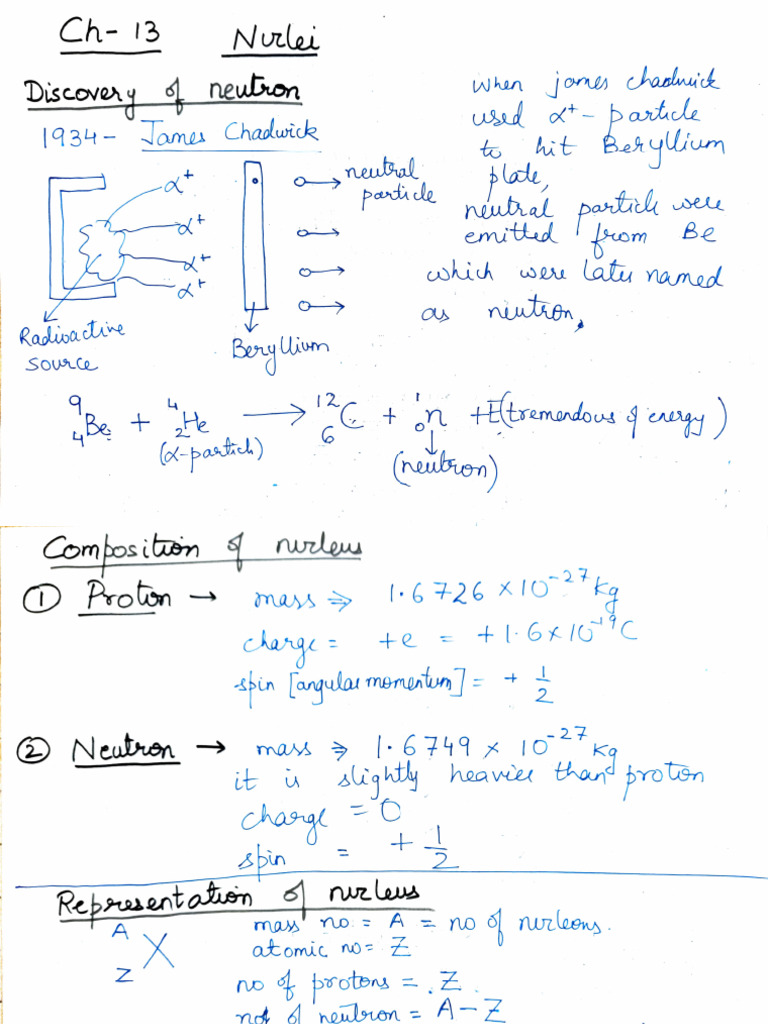 Ch-13 Nuclei
Discovery of neutron
1934- James Chadwick
when james chadwick
used α⁺-particle
to hit Beryllium
plate,
neutral particle were
emitted from Be
which were later named
as neutron,
α⁺
α⁺
α⁺
α⁺
neutral
particle
Radioactive
source
Beryllium
⁹₄Be + ⁴₂He → ¹²₆C + ¹₀n + E(tremendous of energy)
(α-particle)
(neutron)
Composition of nucleus
① Proton → mass ⇒ 1.6726 × 10⁻²⁷ kg
charge = +e = +1.6×10⁻¹⁹C
spin [angular momentum] = + 1/2
② Neutron → mass ⇒ 1.6749 × 10⁻²⁷ kg
it is slightly heavier than proton
charge = 0
spin = + 1/2
Representation of nucleus
A
X
Z
mass no = A = no of nucleons.
atomic no = Z
no of protons = Z.
no of neutron = A-Z